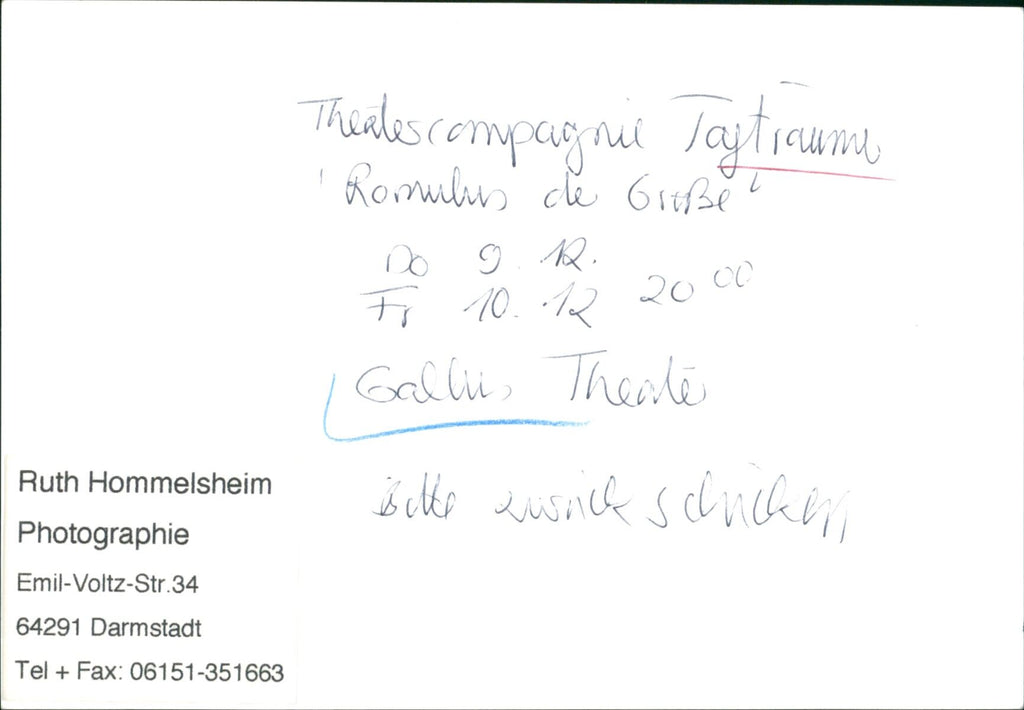 Theatercompagnie Tagträume
'Romulus der Große'
Do 9. 12.
Fr 10. 12 20 00
Gallus Theater
Bitte zurück schicken
Ruth Hommelsheim
Photographie
Emil-Voltz-Str.34
64291 Darmstadt
Tel + Fax: 06151-351663